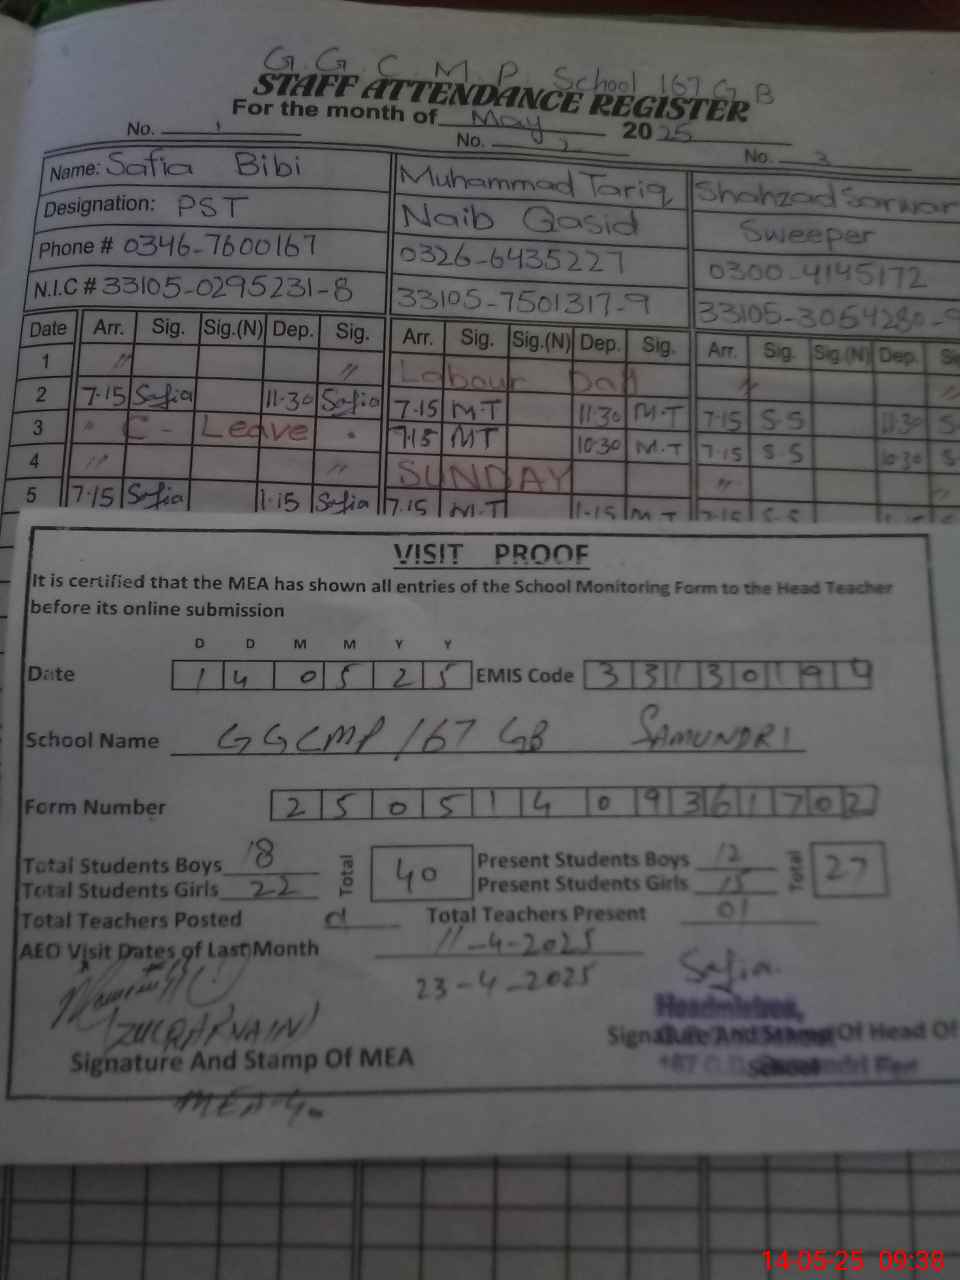 G.G.C.M.P. School 167 GB
STAFF ATTENDANCE REGISTER
For the month of May 2025
No. 1 No. 2 No. 3
Name: Safia Bibi Muhammad Tariq Shahzad Sarwar
Designation: PST Naib Qasid Sweeper
Phone # 0346-7600167 0326-6435227 0300-4145172
N.I.C # 33105-0295231-8 33105-7501317-9 33105-3054280-9
Date Arr. Sig. Sig.(N) Dep. Sig. Arr. Sig. Sig.(N) Dep. Sig. Arr. Sig. Sig.(N) Dep. Si
1 〃 〃 Labour Day 〃 〃
2 7-15 Safia 11-30 Safia 7-15 M-T 11-30 M-T 7-15 S-S 11-30 S-
3 C - Leave 7-15 MT 10-30 M-T 7-15 S-S 10-30 S
4 〃 〃 SUNDAY 〃 〃
5 7-15 Safia 1-15 Safia 7-15 M-T 1-15 M-T 7-15 S-S
VISIT PROOF
It is certified that the MEA has shown all entries of the School Monitoring Form to the Head Teacher
before its online submission
D D M M Y Y
Date 1 4 0 5 2 5 EMIS Code 3 3 1 3 0 1 9 4
School Name GGCMP 167 GB SAMUNDRI
Form Number 2 5 0 5 1 4 0 9 3 6 1 7 0 2
Total Students Boys 18 Total 40 Present Students Boys 12 Total 27
Total Students Girls 22 Present Students Girls 15
Total Teachers Posted Total Teachers Present 01
AEO Visit Dates of Last Month 11-4-2025
23-4-2025
Safia
Headmistress,
ZULQARNAIN
Signature And Stamp Of MEA Signature And Stamp Of Head Of
School
MEA-40
14-05-25 09:38